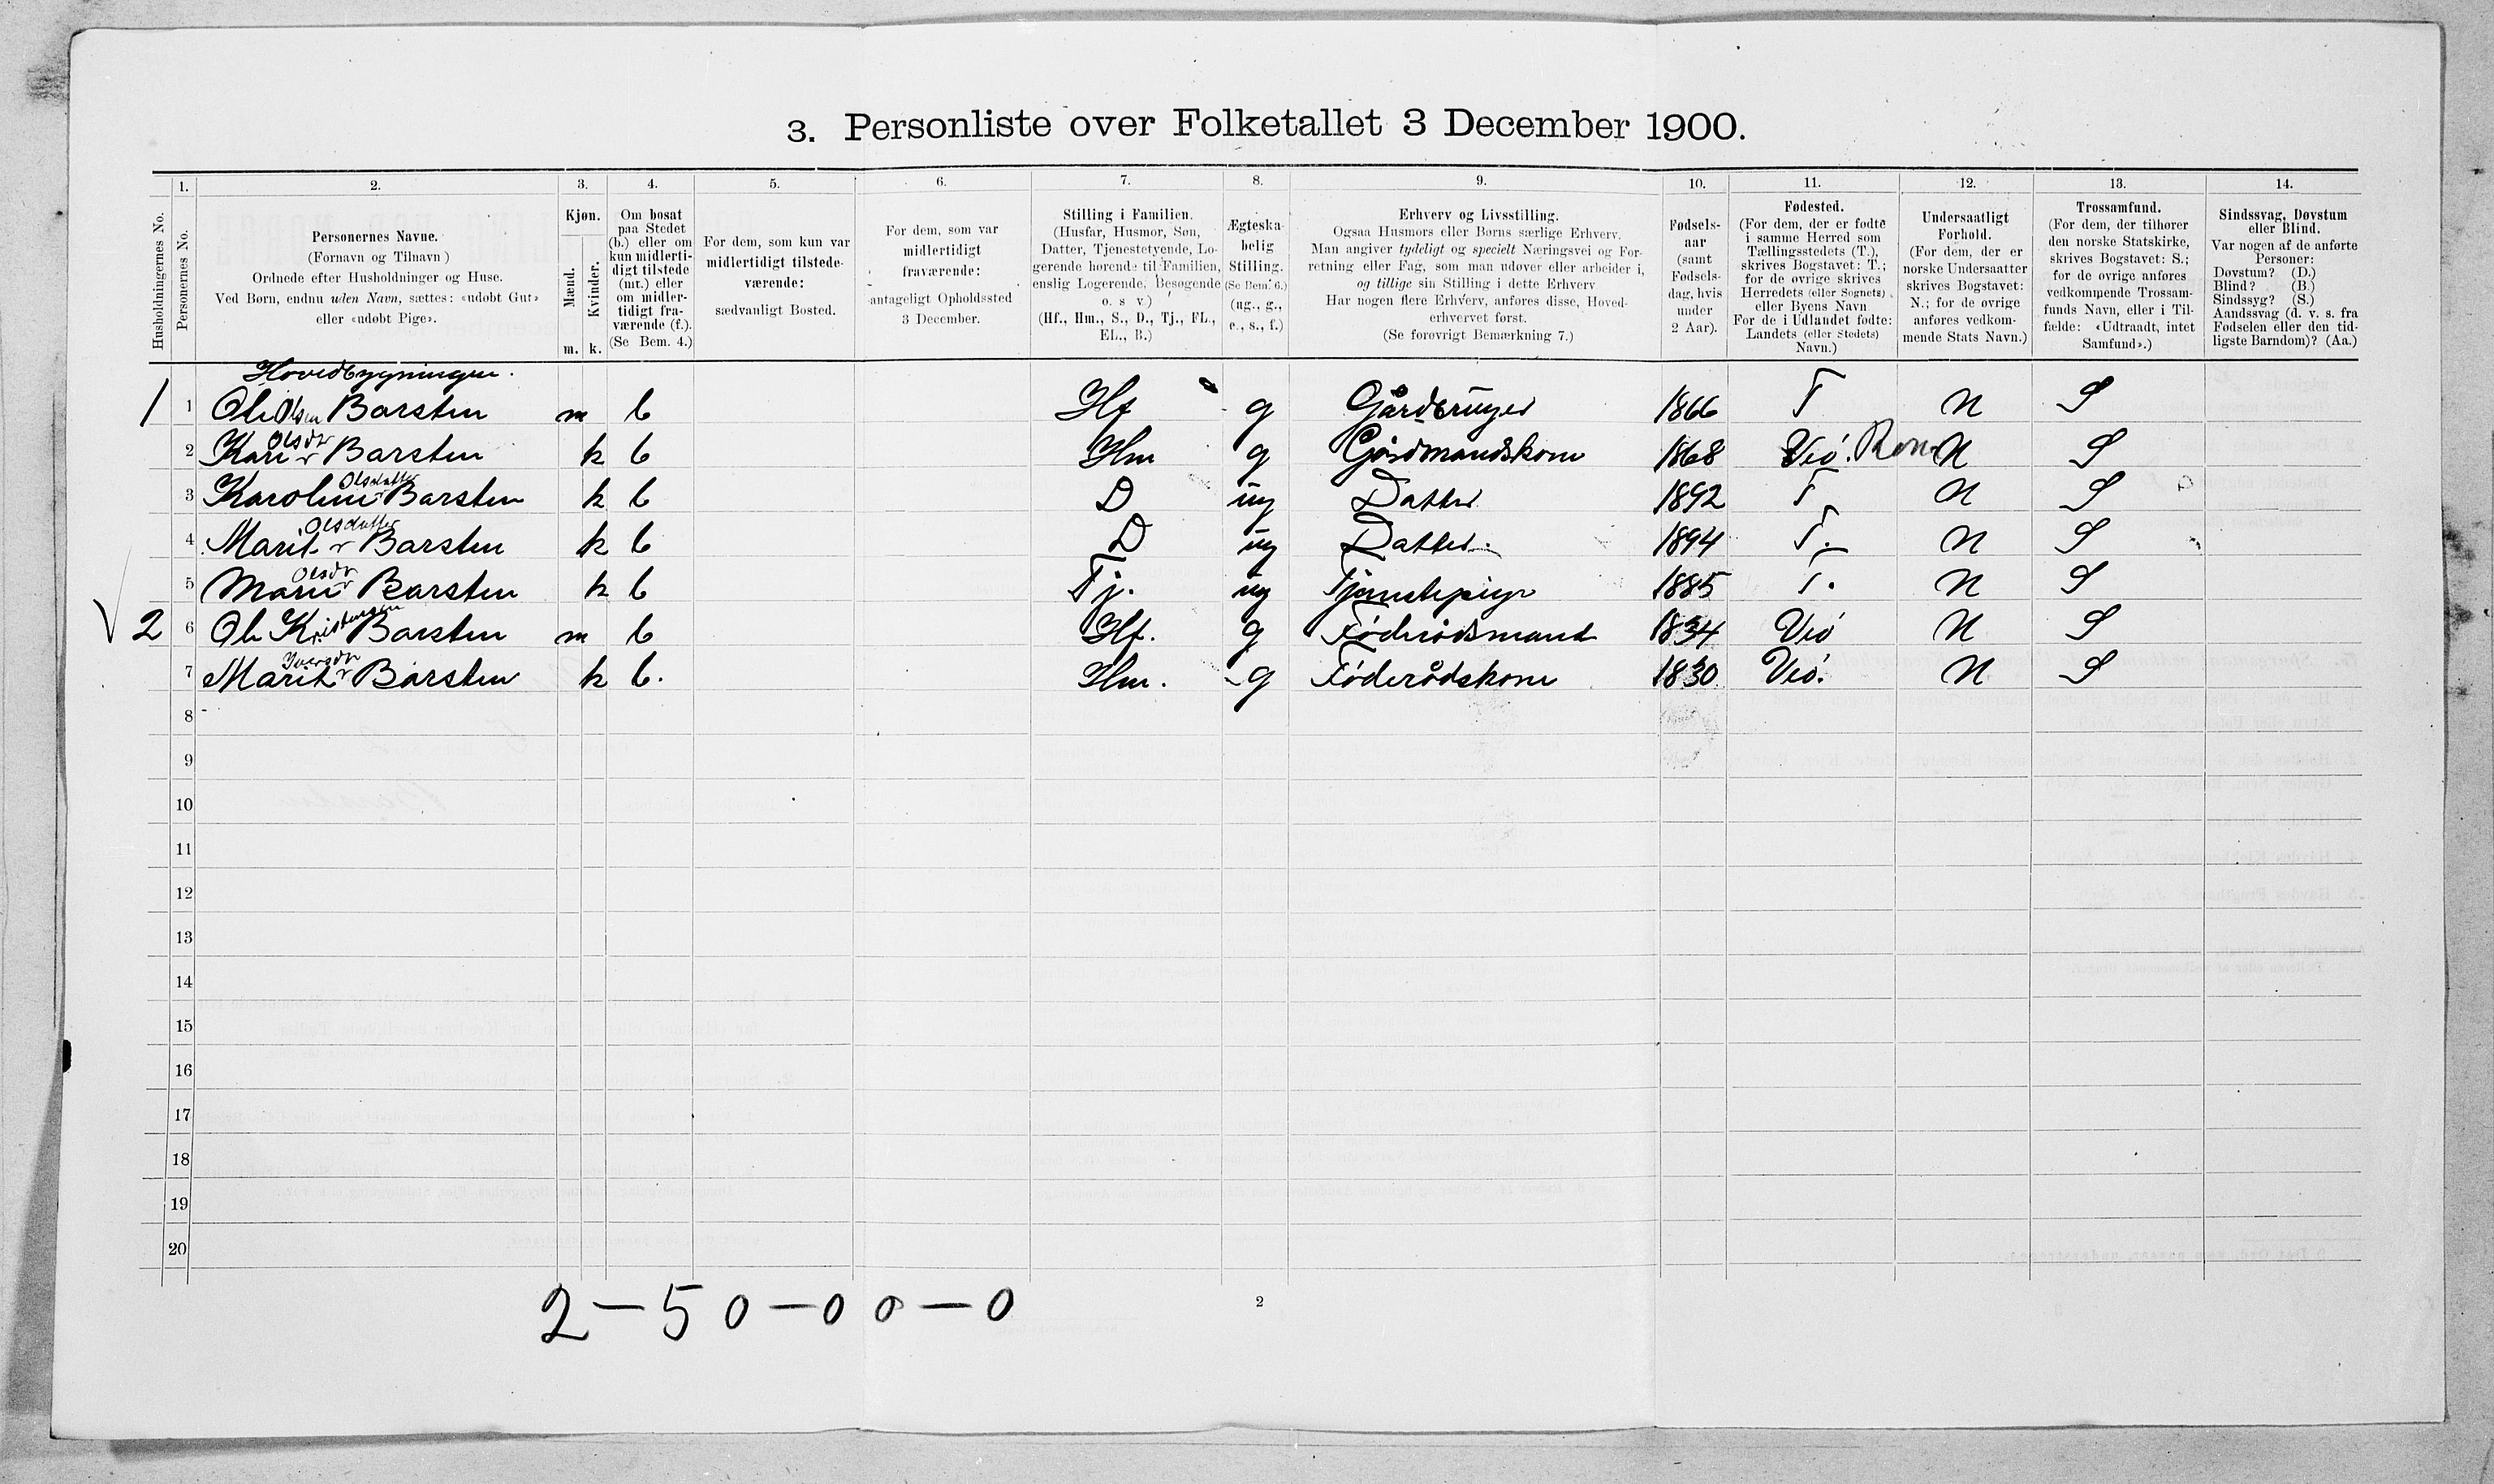 3. Personliste over Folketallet 3 December 1900.
Husholdningernes No.
1.
Personernes No.
2.
Personernes Navne.
(Fornavn og Tilnavn)
Ordnede efter Husholdninger og Huse.
Ved Børn, endnu uden Navn, sættes: «udøbt Gut»
eller «udøbt Pige».
3.
Kjøn.
Mænd.
Kvinder.
m. k.
4.
Om bosat
paa Stedet
(b.) eller om
kun midlerti-
digt tilstede
(mt.) eller
om midler-
tidigt fra-
værende (f.).
(Se Bem. 4.)
5.
For dem, som kun var
midlertidigt tilstede-
værende:
sædvanligt Bosted.
6.
For dem, som var
midlertidigt
fraværende:
antageligt Opholdssted
3 December.
7.
Stilling i Familien.
(Husfar, Husmor, Søn,
Datter, Tjenestetyende, Lo-
gerende hørende til Familien,
enslig Logerende, Besøgende
o. s v.)
(Hf., Hm., S., D., Tj., FL.,
EL., B.)
8.
Ægteska-
belig
Stilling.
(Se Bem. 6.)
(ug., g.,
e., s., f.)
9.
Erhverv og Livsstilling.
Ogsaa Husmors eller Børns særlige Erhverv.
Man angiver tydeligt og specielt Næringsvei og For-
retning eller Fag, som man udøver eller arbeider i,
og tillige sin Stilling i dette Erhverv
Har nogen flere Erhverv, anføres disse, Hoved-
erhvervet først.
(Se forøvrigt Bemærkning 7.)
10.
Fødsels-
aar
(samt
Fødsels-
dag, hvis
under
2 Aar).
11.
Fødested.
(For dem, der er fødte
i samme Herred som
Tællingsstedets (T.),
skrives Bogstavet: T.;
for de øvrige skrives
Herredets (eller Sognets)
eller Byens Navn
For de i Udlandet fødte:
Landets (eller Stedets)
Navn.)
12.
Undersaatligt
Forhold.
(For dem, der er
norske Undersaatter
skrives Bogstavet:
N.; for de øvrige
anføres vedkom-
mende Stats Navn.)
13.
Trossamfund.
(For dem, der tilhører
den norske Statskirke,
skrives Bogstavet: S.;
for de øvrige anføres
vedkommende Trossam-
funds Navn, eller i Til-
fælde: «Udtraadt, intet
Samfund».)
14.
Sindssvag, Døvstum
eller Blind.
Var nogen af de anførte
Personer:
Døvstum? (D.)
Blind? (B.)
Sindssyg? (S.)
Aandssvag (d. v. s. fra
Fødselen eller den tid-
ligste Barndom)? (Aa.)
Hovedbygningen.
1 1 Ole Olsen Barsten m b Hf g Gårdbruger 1866 T N S
2 Kari Olsdtr Barsten k b Hm g Gårdmandskone 1868 Veø. N S
3 Karoline Olsdatter Barsten k b D ug Datter 1892 T N S
4 Marit Olsdatter Barsten k b D ug Datter. 1894 T. N S
5 Marie Olsdtr Barsten k b Tj. ug Tjenestepige 1885 T. N S
2 6 Ole Kristensen Barsten m b Hf. g Føderådsmand 1834 Veø N S
7 Marit Iversdtr Barsten k b. Hm. g Føderådskone 1830 Veø. N S
8
9
10
11
12
13
14
15
16
17
18
19
20
2 – 5 0 – 0 0 – 0
2